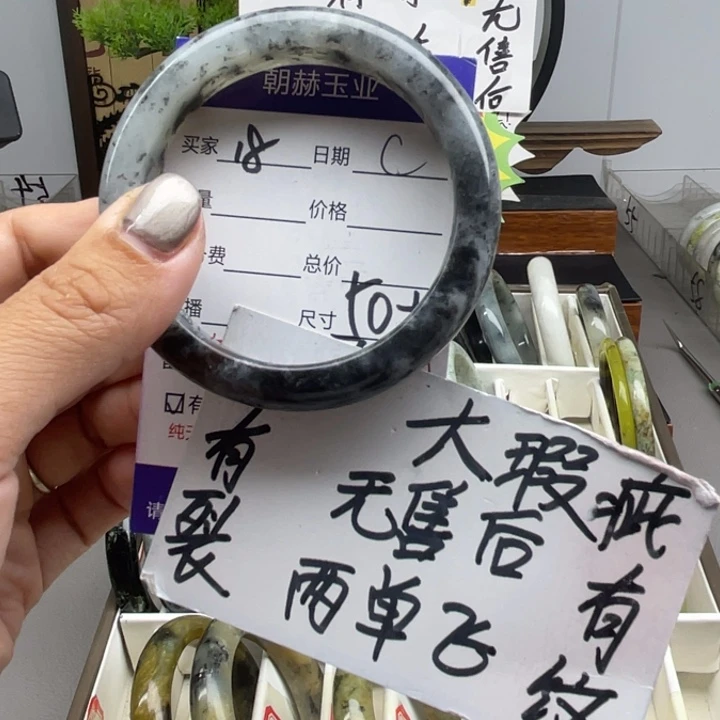 无售后
朝赫玉业
买家 18 日期 C
量 价格
费 总价
播 尺寸 50+
有
纯
请
有裂
大瑕疵
无售后
两单飞
有纹
54
55